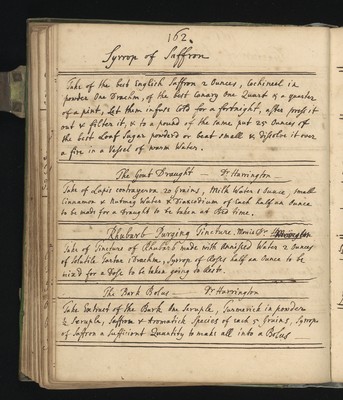 162.
Syrrop of Saffron
Take of the best English Saffron 2 Ounces, Cochineel in
powder One Drachm, of the best Canary One Quart & a quarter
of a pint, Let them infuse Cold for a fortnight, after press it
out & filter it, & to a pound of the same put 25 Ounces of
the best Loaf Sugar powderd or beat small & dissolve it over
a fire in a Vessel of warm Water.
The Gout Draught — Dr Harrington
Take of Lapis contrayerva 20 Grains, Milk Water 1 Ounce, small
Cinnamon & Nutmeg Water & Diascodium of each half an Ounce
to be made for a Draught to be taken at Bed time.
Rhubarb Purging Tincture, Dr
Take of Tincture of Rhubarb made with Annised Water 2 Ounces
of Soluble Tartar 1 Drachm, Syrrop of Roses half an Ounce to be
mixd for a Dose to be taken going to Rest.
The Bark Bolus — Dr Harrington
Take Extract of the Bark One Scruple, Turmerick in powder
½ Scruple, Saffron & Aromatick Species of each 5 Grains, Syrrop
of Saffron a Sufficient Quantity to make all into a Bolus